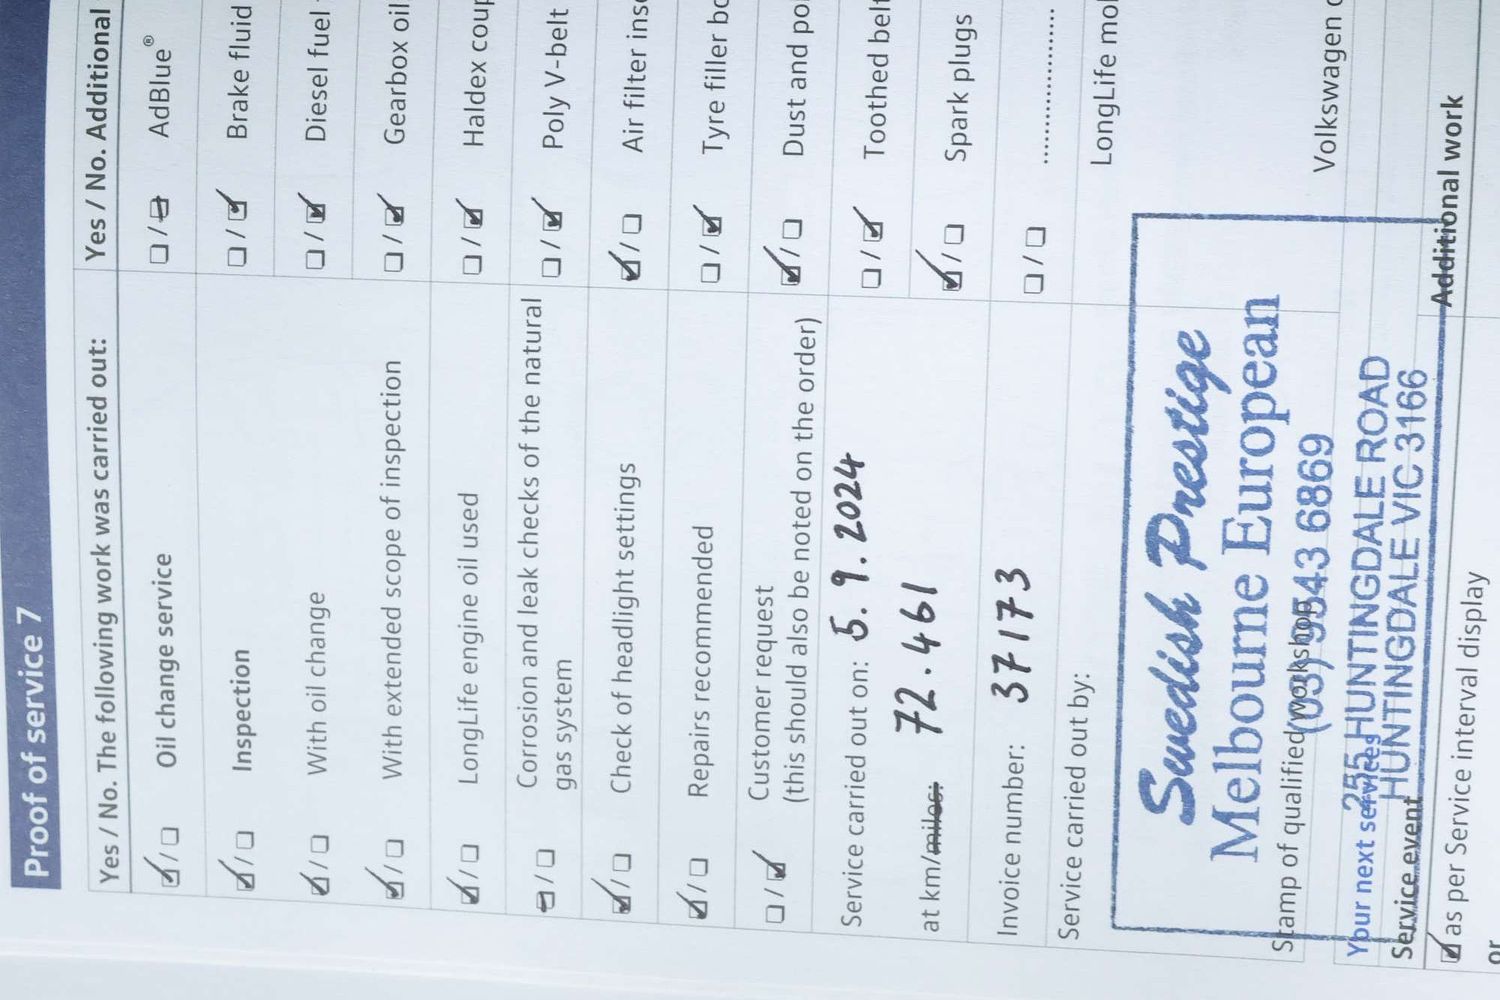 Proof of service 7
Yes / No. The following work was carried out:
Oil change service
Inspection
With oil change
With extended scope of inspection
LongLife engine oil used
Corrosion and leak checks of the natural
gas system
Check of headlight settings
Repairs recommended
Customer request
(this should also be noted on the order)
Service carried out on: 5.9.2024
at km/miles: 72.461
Invoice number: 37173
Service carried out by:
Swedish Prestige
Melbourne European
(03) 9543 6869
Stamp of qualified workshop
255 HUNTINGDALE ROAD
HUNTINGDALE VIC 3166
Your next services
Service event
as per Service interval display
or
Yes / No. Additional
AdBlue®
Brake fluid
Diesel fuel
Gearbox oil
Haldex
Poly V-belt
Air filter
Tyre filler
Dust and
Toothed belt
Spark plugs
LongLife
Volkswagen
Additional work